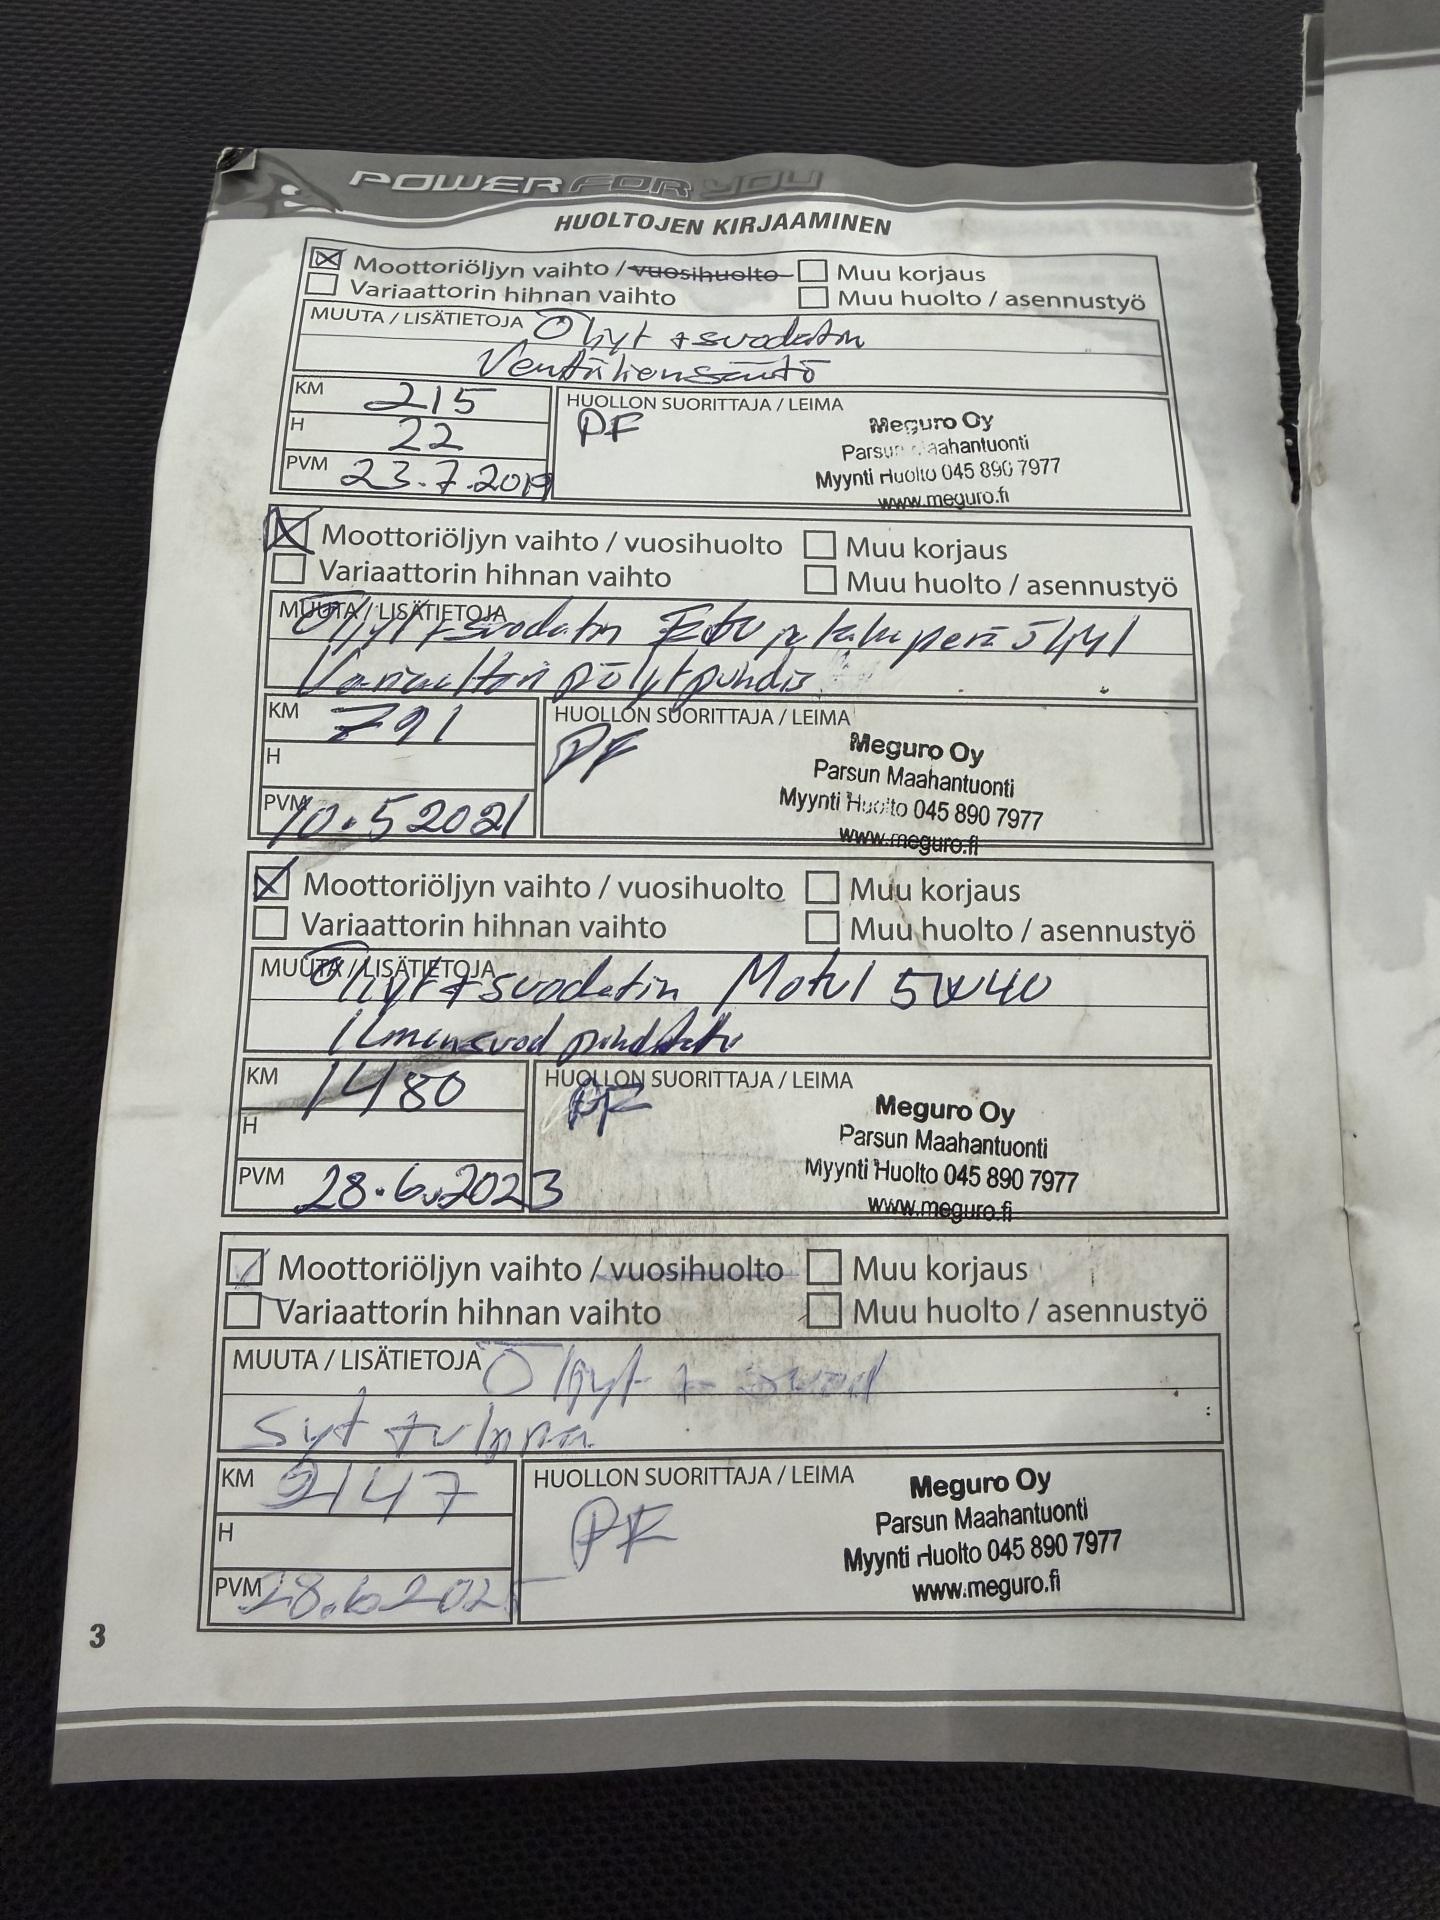 POWER FOR YOU
HUOLTOJEN KIRJAAMINEN
Moottoriöljyn vaihto / vuosihuolto Muu korjaus
Variaattorin hihnan vaihto Muu huolto / asennustyö
MUUTA / LISÄTIETOJA Öljyt + suodatin
Venttiiliensäätö
KM 215
H 22
PVM 23.7.2019
HUOLLON SUORITTAJA / LEIMA
PF
Meguro Oy
Parsun Maahantuonti
Myynti Huolto 045 890 7977
www.meguro.fi
Moottoriöljyn vaihto / vuosihuolto Muu korjaus
Variaattorin hihnan vaihto Muu huolto / asennustyö
MUUTA / LISÄTIETOJA
Öljyt + suodatin Etu ja takaperä öljyt
Variaattorin pölytpuhdis
KM 791
H
PVM 10.5 2021
HUOLLON SUORITTAJA / LEIMA
PF
Meguro Oy
Parsun Maahantuonti
Myynti Huolto 045 890 7977
www.meguro.fi
Moottoriöljyn vaihto / vuosihuolto Muu korjaus
Variaattorin hihnan vaihto Muu huolto / asennustyö
MUUTA / LISÄTIETOJA
Öljyt + suodatin Motul 5W40
Ilmansuod
KM 1480
H
PVM 28.6.2023
HUOLLON SUORITTAJA / LEIMA
PF
Meguro Oy
Parsun Maahantuonti
Myynti Huolto 045 890 7977
www.meguro.fi
Moottoriöljyn vaihto / vuosihuolto Muu korjaus
Variaattorin hihnan vaihto Muu huolto / asennustyö
MUUTA / LISÄTIETOJA Öljyt + suod
Syt tulppa
KM 2147
H
PVM 28.6.2025
HUOLLON SUORITTAJA / LEIMA
PF
Meguro Oy
Parsun Maahantuonti
Myynti Huolto 045 890 7977
www.meguro.fi
3